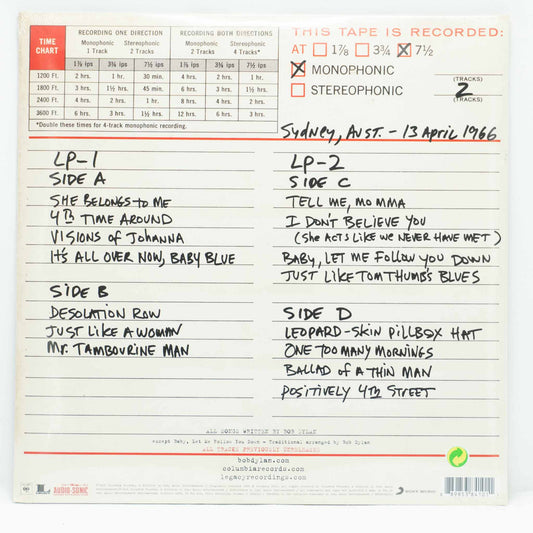 TIME CHART
RECORDING ONE DIRECTION
RECORDING BOTH DIRECTIONS
Monophonic 1 Track
Stereophonic 2 Tracks
Monophonic 2 Tracks
Stereophonic 4 Tracks*
1⅞ ips 3¾ ips 7½ ips 1⅞ ips 3¾ ips 7½ ips
1200 Ft. 2 hrs. 1 hr. 30 min. 4 hrs. 2 hrs. 1 hr.
1800 Ft. 3 hrs. 1½ hrs. 45 min. 6 hrs. 3 hrs. 1½ hrs.
2400 Ft. 4 hrs. 2 hrs. 1 hr. 8 hrs. 4 hrs. 2 hrs.
3600 Ft. 6 hrs. 3 hrs. 1½ hrs. 12 hrs. 6 hrs. 3 hrs.
*Double these times for 4-track monophonic recording.
THIS TAPE IS RECORDED:
AT 1⅞ 3¾ X 7½
X MONOPHONIC
STEREOPHONIC
(TRACKS)
2
(TRACKS)
SYDNEY, AUST. - 13 APRIL 1966
LP-1
SIDE A
SHE BELONGS TO ME
4TH TIME AROUND
VISIONS of JOHANNA
IT'S ALL OVER NOW, BABY BLUE
SIDE B
DESOLATION ROW
JUST LIKE A WOMAN
MR. TAMBOURINE MAN
LP-2
SIDE C
TELL ME, MOMMA
I DON'T BELIEVE YOU
(She ACTS LIKE WE NEVER HAVE MET)
BABY, LET ME FOLLOW YOU DOWN
JUST LIKE TOM THUMB'S BLUES
SIDE D
LEOPARD-SKIN PILLBOX HAT
ONE TOO MANY MORNINGS
BALLAD of A THIN MAN
POSITIVELY 4TH STREET
ALL SONGS WRITTEN BY BOB DYLAN
except Baby, Let Me Follow You Down - Traditional arranged by Bob Dylan
ALL TRACKS PREVIOUSLY UNRELEASED
bobdylan.com
columbiarecords.com
legacyrecordings.com
AUDIO-SONIC